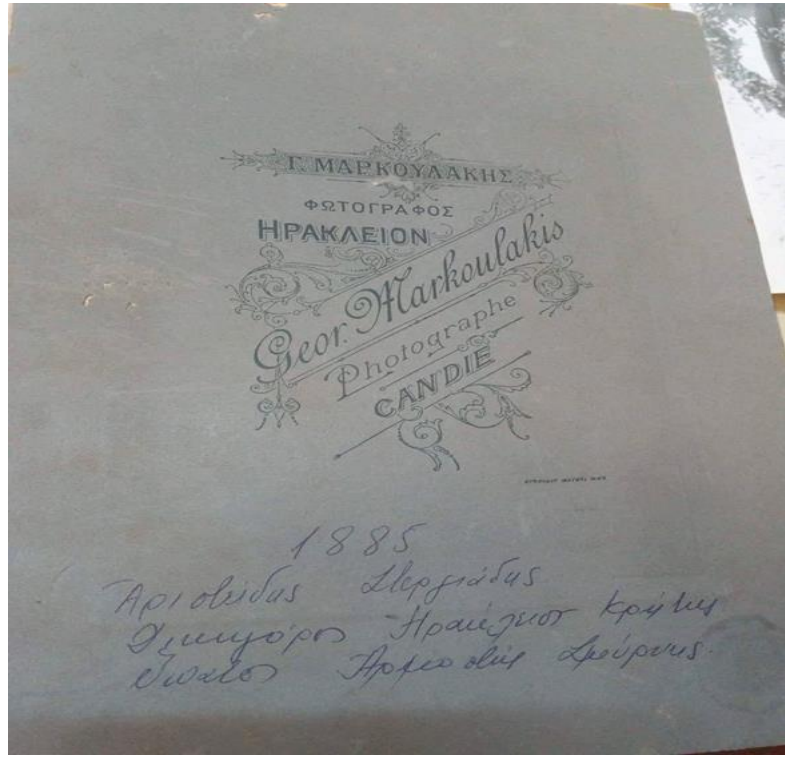 Γ. ΜΑΡΚΟΥΛΑΚΗΣ
ΦΩΤΟΓΡΑΦΟΣ
ΗΡΑΚΛΕΙΟΝ
Geor. Markoulakis
Photographe
CANDIE
1885
Αριστείδης Στεργιάδης
Δικηγόρος Ηράκλειον Κρήτης
Ύπατος Αρμοστής Σμύρνης.